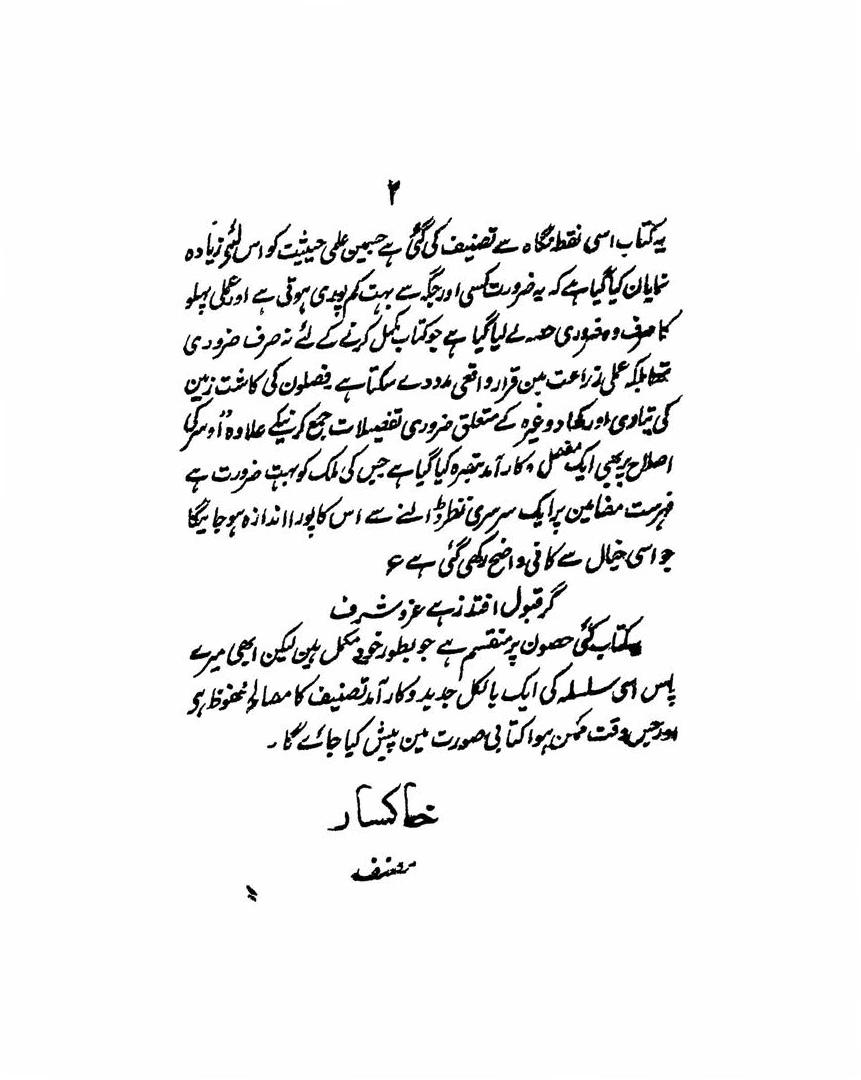 ۲
یہ کتاب اسی نقطہ نگاہ سے تصنیف کی گئی ہے جسمین علمی حیثیت کو اس لئے زیادہ
نمایان کیا گیا ہے کہ یہ ضرورت کسی اور جگہ سے بہت کم پوری ہوتی ہے اور عملی پہلو
کا صرف وہ ضروری حصہ لے لیا گیا ہے جو کتاب مکمل کرنے کے لئے نہ صرف ضروری
تھا بلکہ عملی زراعت مین قرار واقعی مدد دے سکتا ہے فصلون کی کاشت زمین
کی تیاری اور کھاد وغیرہ کے متعلق ضروری تفصیلات جمع کرنیکے علاوہ اوسر کی
اصلاح پر بھی ایک مفصل و کار آمد تبصرہ کیا گیا ہے جس کی ملک کو بہت ضرورت ہے
فہرست مضامین پر ایک سرسری نظر ڈالنے سے اس کا پورا اندازہ ہو جائیگا
جو اسی خیال سے کافی واضح رکھی گئی ہے ع
گر قبول افتد زہے عز و شرف
یہ کتاب کئی حصون پر منقسم ہے جو بطور خود مکمل ہین لیکن ابھی میرے
پاس اسی سلسلہ کی ایک بالکل جدید و کار آمد تصنیف کا مصالح محفوظ ہی
اور جس وقت ممکن ہوا کتابی صورت مین پیش کیا جائے گا ۔
خاکسار
مصنف